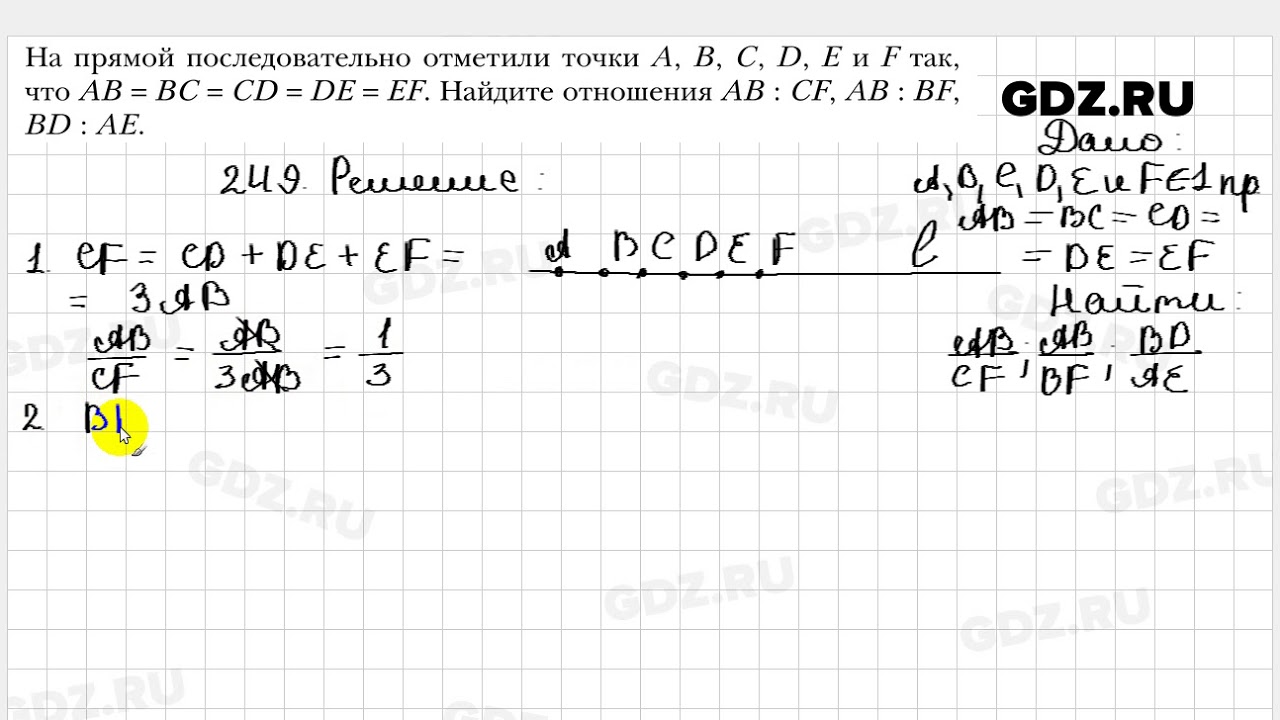 На прямой последовательно отметили точки A, B, C, D, E и F так,
что AB = BC = CD = DE = EF. Найдите отношения AB : CF, AB : BF,
BD : AE.
GDZ.RU
Дано:
249. Решение:
A, B, C, D, E и F ∈ 1 пр
AB = BC = CD =
= DE = EF
1. CF = CD + DE + EF =
A B C D E F ℓ
= 3AB
Найти:
AB/CF = AB/3AB = 1/3
AB/CF, AB/BF, BD/AE
2 B
GDZ.RU
GDZ.RU
GDZ.RU
GDZ.RU
GDZ.RU
GDZ.RU
GDZ.RU
GDZ.RU
GDZ.RU
GDZ.RU